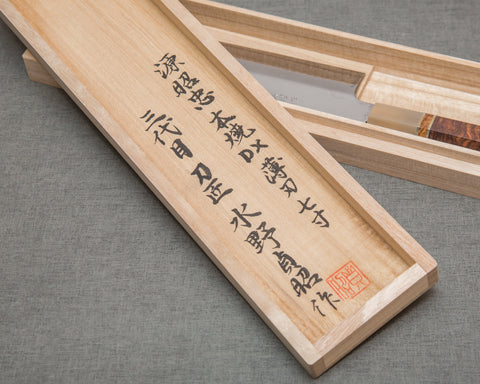 源昭忠 本焼DX 薄刃 七寸
三代目 刀匠 水野貞昭作